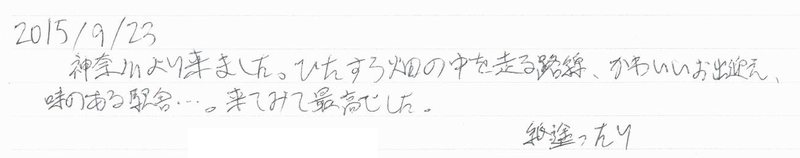 2015/9/23
神奈川より来ました。ひたすら畑の中を走る路線、かわいいお出迎え、
味のある駅舎…。来てみて最高でした。